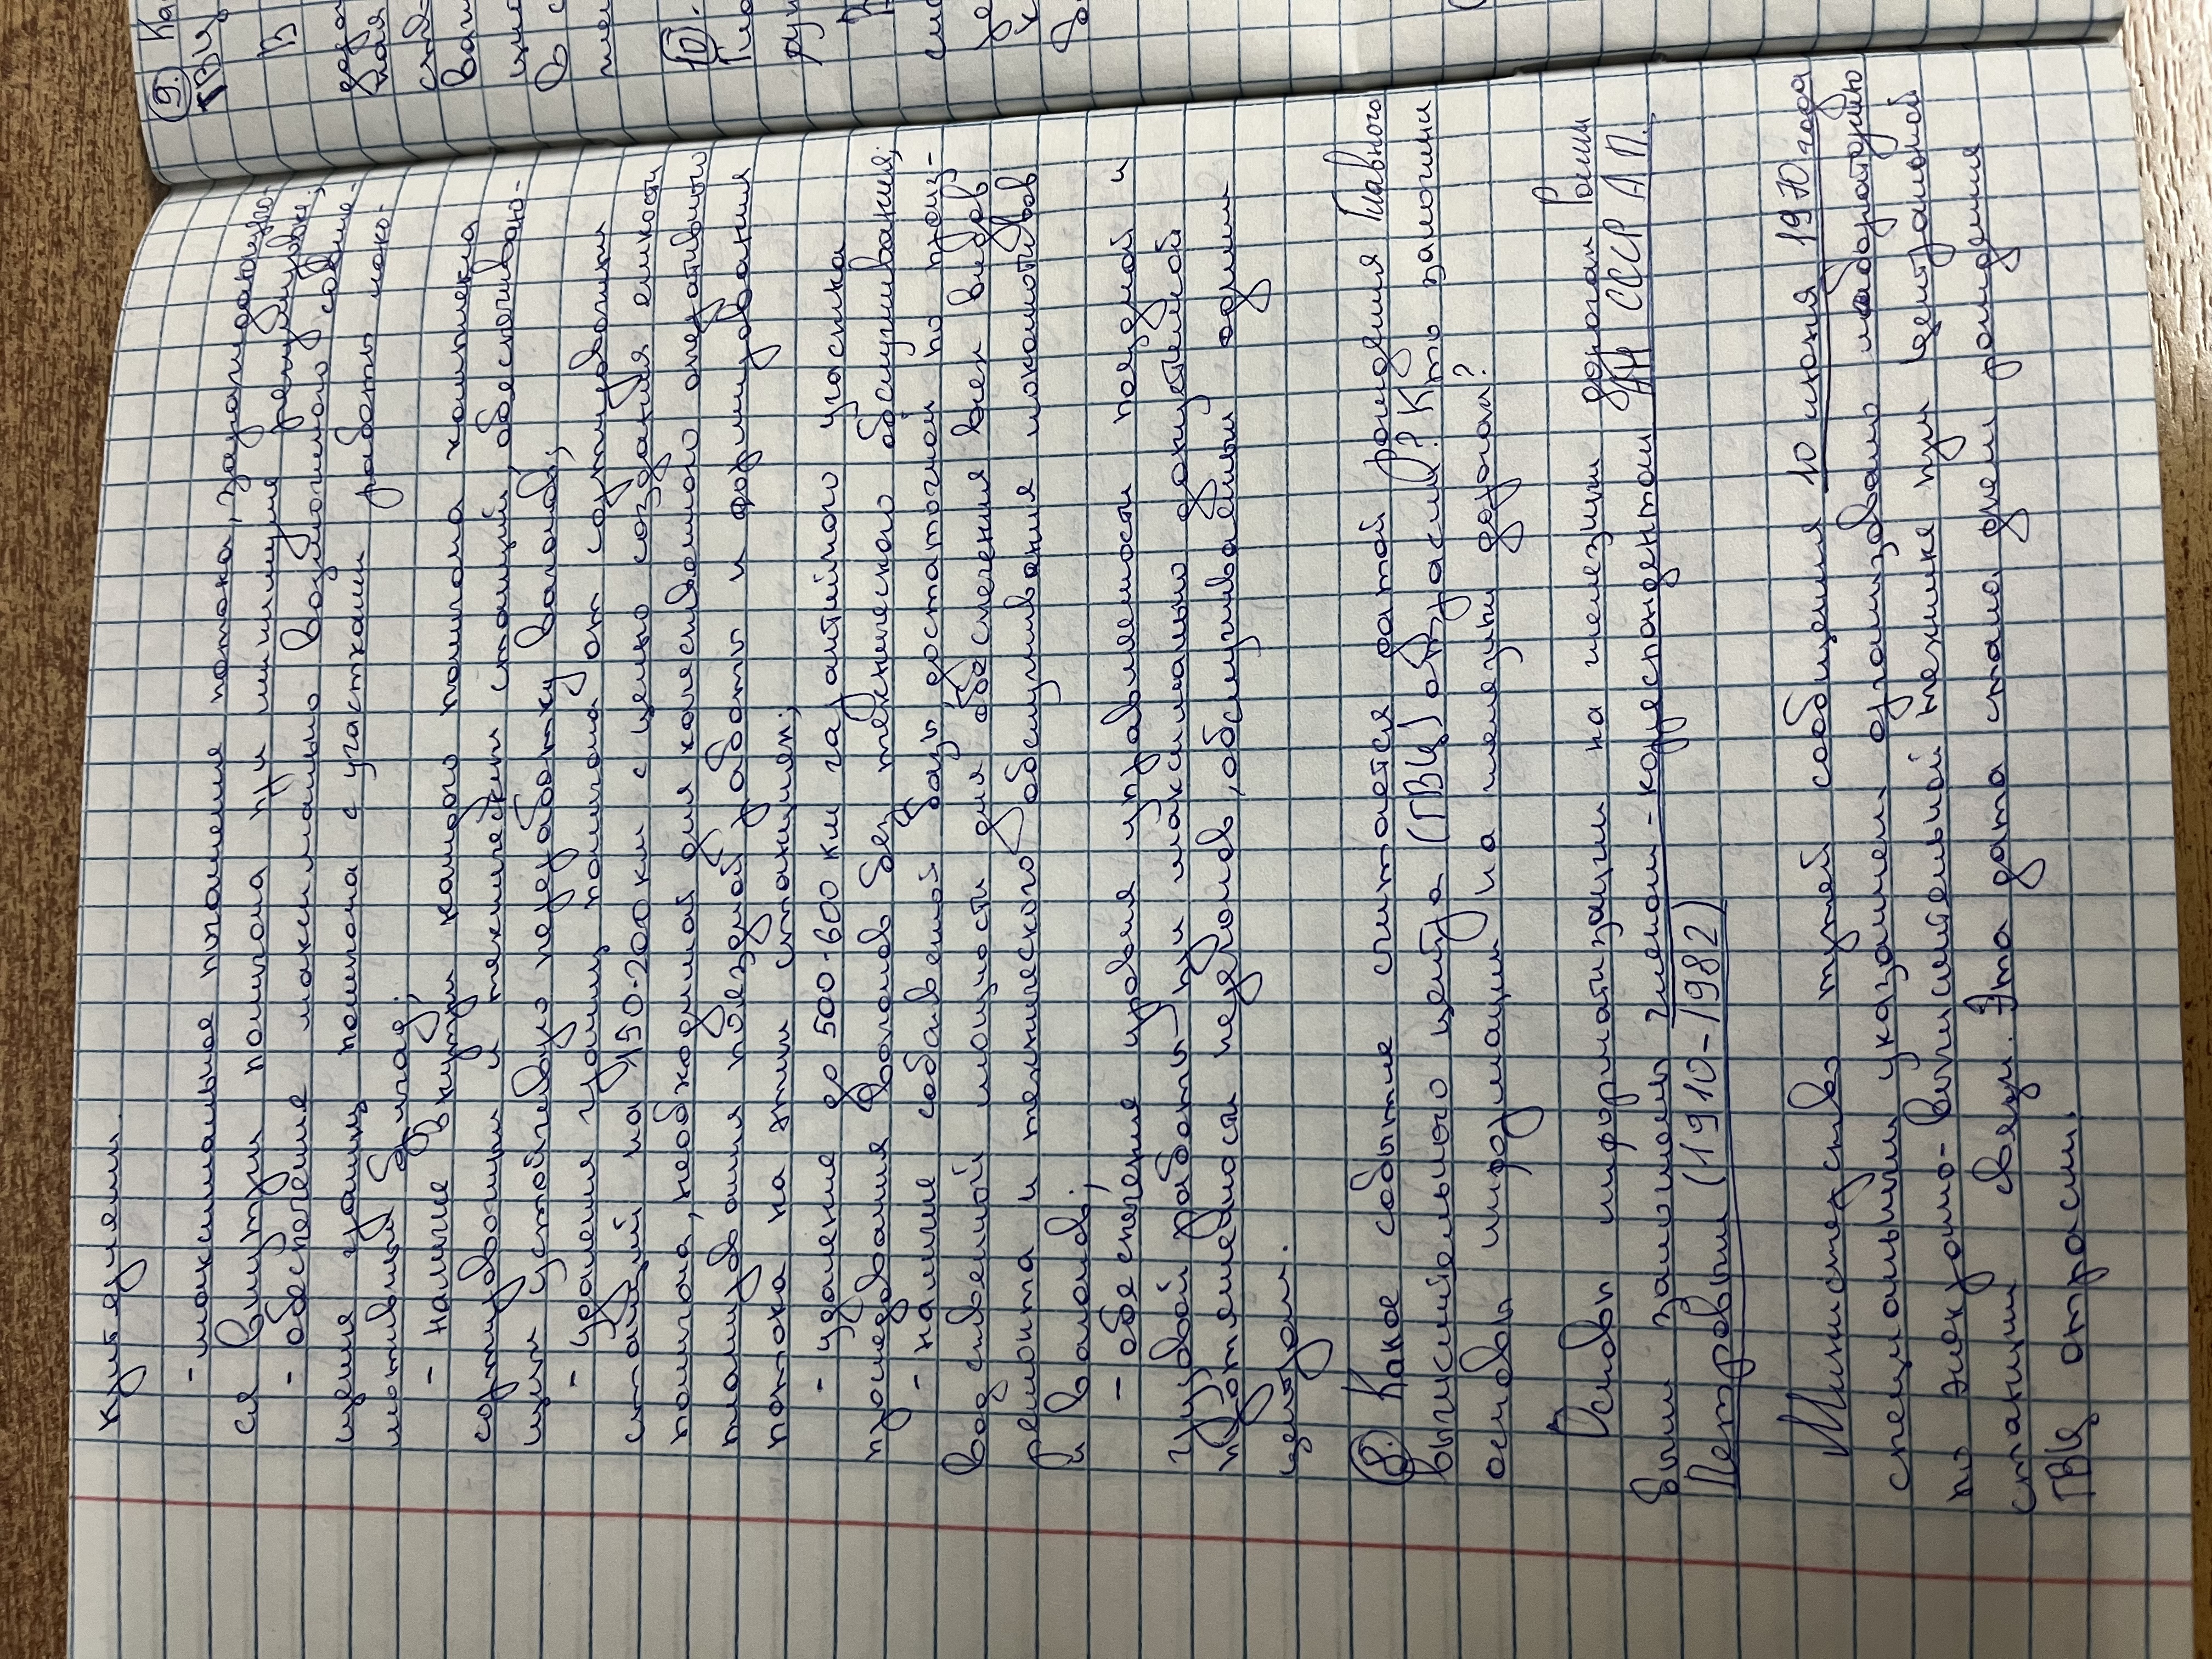 критериям.
- максимальное тяготение потока, зарождающего-
ся внутри полигона при минимуме регулировки;
- обеспечение максимально возможного совме-
щения границ полигона с участками работы локо-
мотивных бригад;
- наличие внутри каждого полигона комплекса
сортировочных и технических станций, обеспечиваю-
щих устойчивую переработку вагонов;
- удаления границ полигона от сортировочных
станций на 150-200 км с целью создания емкости
полигона, необходимой для качественного оперативного
планирования поездной работы и формирования
потока на этих станциях;
- удаление до 500-600 км гарантийного участка
проследования вагонов без технического обслуживания;
- наличие собственной базы, достаточной по произ-
водственной мощности для обеспечения всех видов
ремонта и технического обслуживания локомотивов
и вагонов;
- обеспечение уровня управляемости поездной и
грузовой работы при максимально допустимой
протяженности перегонов, обслуживаемых одним
центром.
8. Какое событие считается датой рождения Главного
вычислительного центра (ГВЦ) отрасли? Кто заложил
основы информации на железных дорогах?
Основы информатизации на железных дорогах России
были заложены Членом-корреспондентом АН СССР А. П.
Петровым (1910-1982)
Министерство путей сообщения 10 июня 1970 года
специальным указанием организовало лабораторию
по электронно-вычислительной технике при Центральной
станции связи. Эта дата стала днем рождения
ГВЦ отрасли.
9. Ка
ГВЦ
В
10.